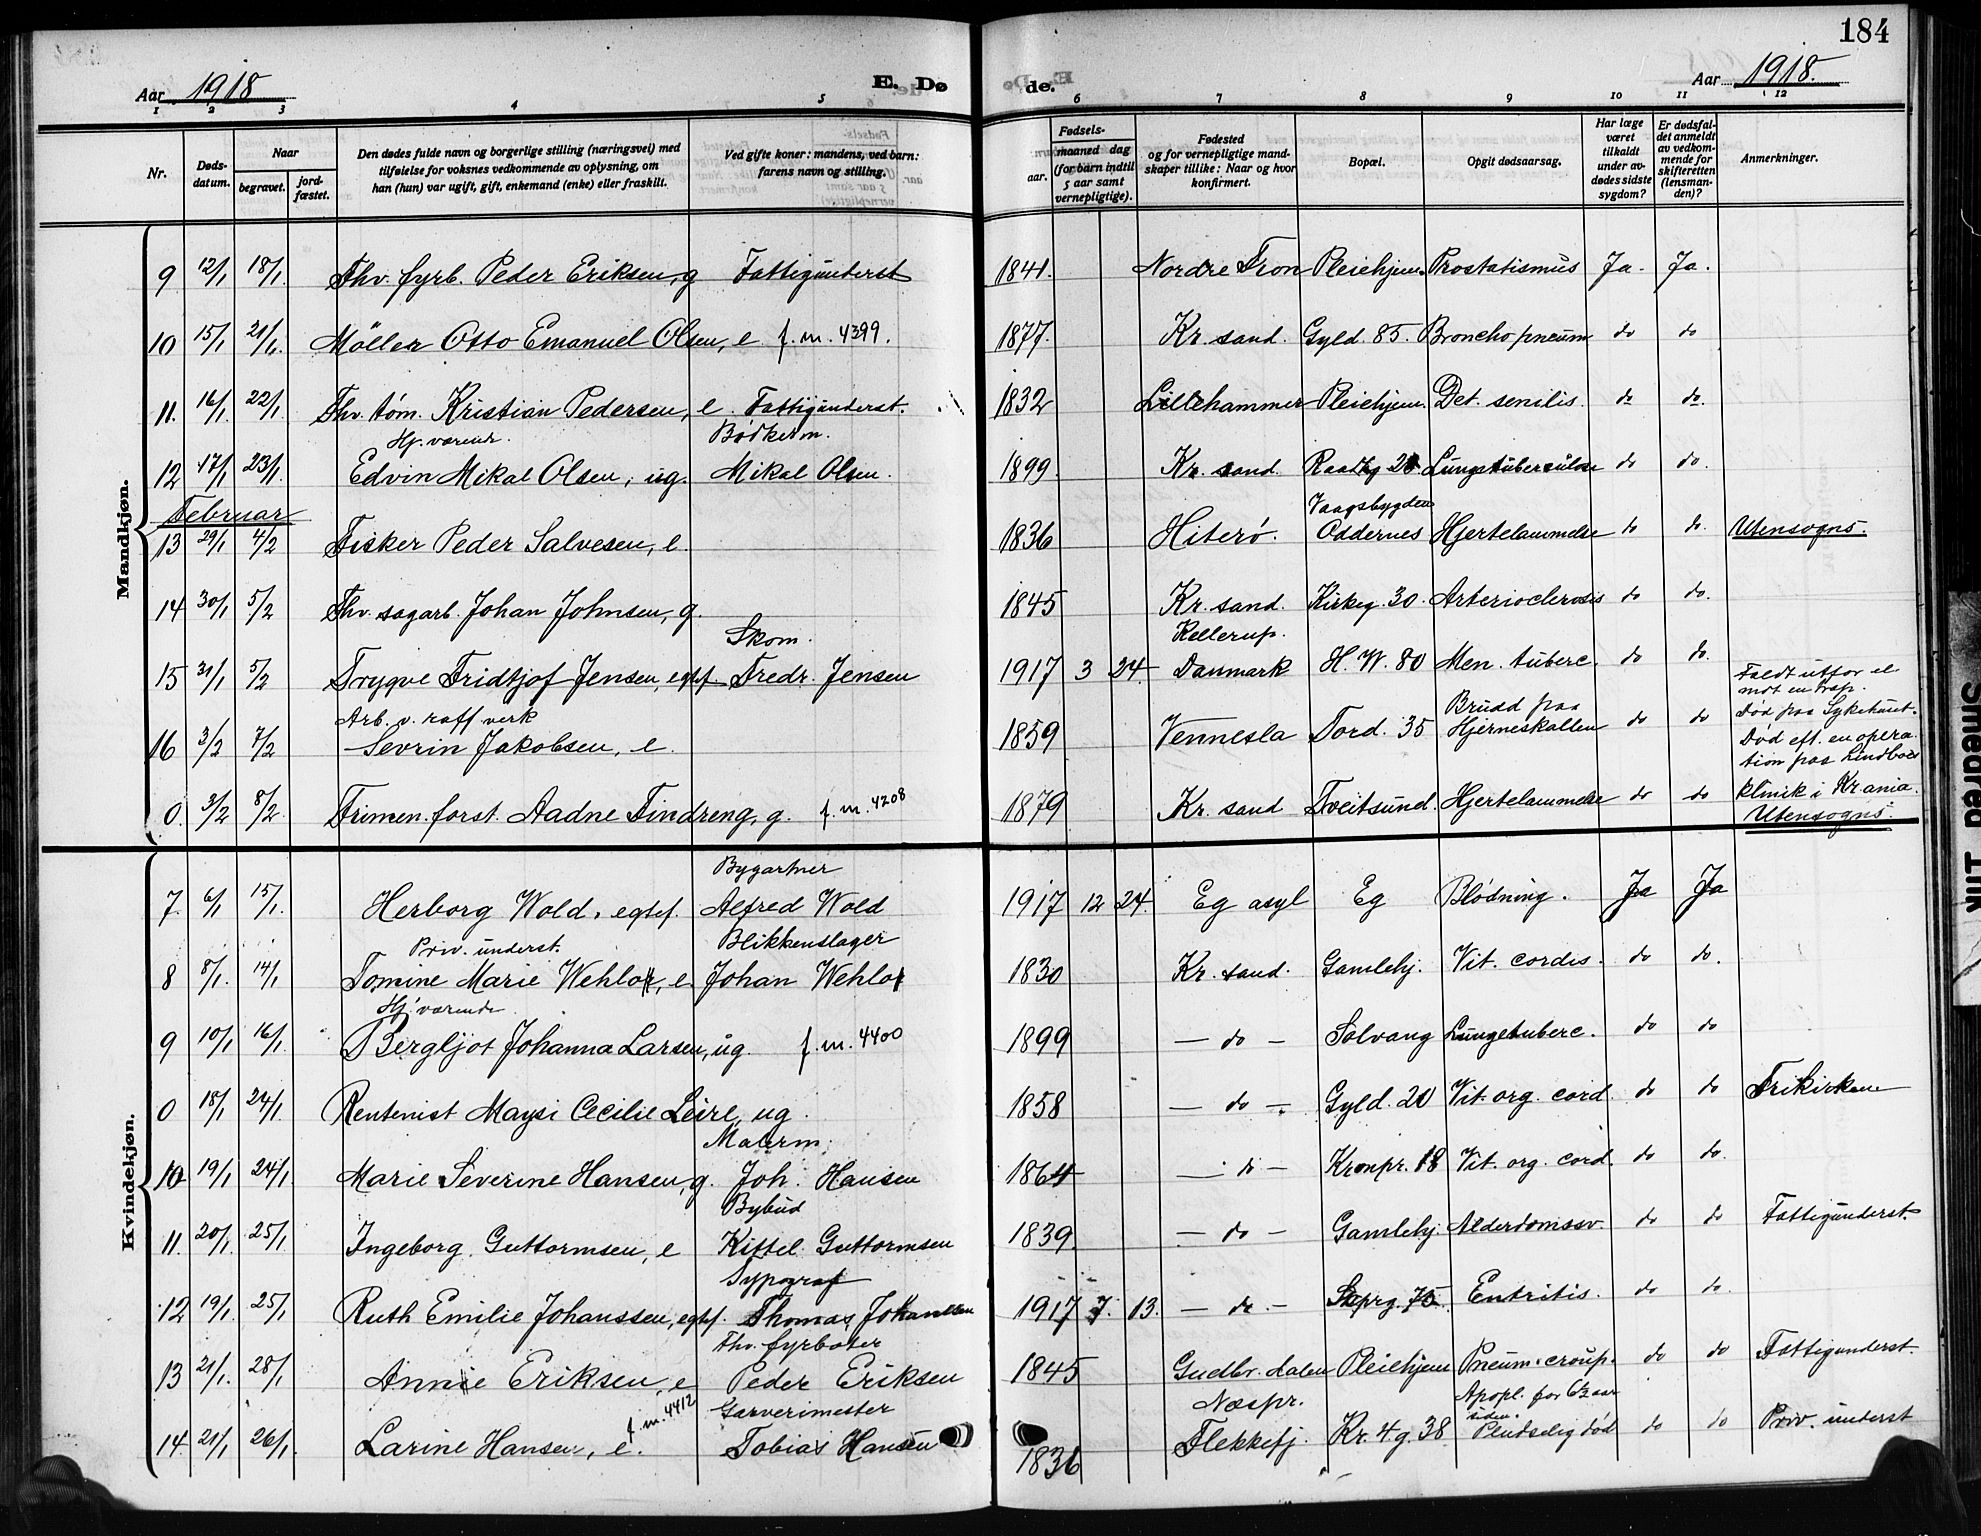 184
Aar 1918
E. Dø
de.
Aar 1918.
1 2 3 4 5 6 7 8 9 10 11 12
Nr. | Døds-datum. | Naar begravet. | jord-fæstet. | Den dødes fulde navn og borgerlige stilling (næringsvei) med tilføielse for voksnes vedkommende av oplysning, om han (hun) var ugift, gift, enkemand (enke) eller fraskilt. | Ved gifte koner: mandens, ved barn: farens navn og stilling. | Fødsels- aar. | maaned dag (for barn indtil 5 aar samt vernepligtige). | Fødested og for vernepligtige mandskaper tillike: Naar og hvor konfirmert. | Bopæl. | Opgit dødsaarsag. | Har læge været tilkaldt under avdødes sidste sygdom? | Er dødsfaldet anmeldt av vedkommende for skifteretten (lensmanden)? | Anmerkninger.
Mandkjøn.
9 12/1 18/1. Fhv. fyrb. Peder Eriksen, g Fattigunderst 1841. Nordre Fron Pleiehjem. Prostatismus Ja. Ja.
10 15/1 21/1. Möller Otto Emanuel Olsen, e. f. m. 4399. 1877. Kr. sand. Gyld. 85. Broncho pneum do do
11. 16/1. 22/1. Fhv. tóm. Kristian Pedersen, e. Fattigunderst. 1832 Lillehammer Pleiehjem. Det. senilis. do do.
Hj. værende. Bödkerm.
12 17/1 23/1. Edvin Mikal Olsen, ug. Mikal Olsen. 1899. Kr. sand. Lungetuberculose do do.
Februar
Vaagsbygden
13 29/1 4/2 Fisker Peder Salvesen, e. 1836 Hiterø. Oddernes Hjertelammelse do do. Utensogns.
14 30/1 5/2 Fhv. sagarb. Johan Johnsen, g. 1845 Kr. sand. Kirkeg. 30. Arterioclerosis do do.
Skom. Kellerup.
15 31/1 5/2 Trygve Fridtjof Jensen, egtef. Fredr. Jensen 1917 3 24 Danmark H. W. 80 Men. tuberc. do do.
Faldt utfor el
mot en trap.
Arb. v. raff verk Brudd paa Død paa Sykehuset.
16 3/2 7/2 Sevrin Jakobsen, e. 1859 Vennesla Tord. 35 Hjerneskallen do do
Død eft. en opera-
tion paa Lindboes
0. 3/2 8/2. Trimen. forst. Aadne Findreng, g. f. m. 4208 1879 Kr. sand Tveitsund. Hjertelammelse do do klinik i Krania.
Utensogns.
Kvindekjøn.
Bygartner
7. 6/1 15/1. Herborg Wold, egtef. Alfred Wold 1917 12 24. Eg asyl Eg Blödning. Ja Ja
Priv. underst. Blikkenslager
8 8/1. 14/1 Tomine Marie , e. Johan 1830 Kr. sand. Gamlehj. Vit. cordis. do do.
Hj. værende
9 10/1 16/1. Bergljot Johanna Larsen, ug. f. m. 4400 1899 — do — Solvang Lungetuberc. do do
0 18/1 24/1. Rentenist Maysi Cecilie Leire, ug. 1858 — do — Gyld. 20 Vit. org. cord. do do Frikirken
Malerm.
10 19/1 24/1 Marie Severine Hansen, g. Joh. Hansen 1864 — do — Kronpr. 18 Vit. org. cord. do do.
Bybud
11. 20/1. 25/1. Ingeborg Guttormsen, e Kittel Guttormsen 1839. — do — Gamlehj. Alderdomssv. do do Fattigunderst.
Typograf
12 19/1. 25/1 Ruth Emilie Johanssen, egtef. Thomas Johanssen 1917 7. 13. — do — Entritis. do do.
Fhv. fyrbøter
13 21/1. 28/1 Annie Eriksen, e Peder Eriksen 1845 Gudbr. dalen Pleiehjem Pneum. croup. do do Fattigunderst.
f. m. 4412 Garverimester Næspr. Apopl. for 6½ aar
siden.
14. 21/1 26/1. Larine Hansen, e. Tobias Hansen 1836 Flekkefj. Kr. 4. g. 38 Pludselig død do do Priv. underst